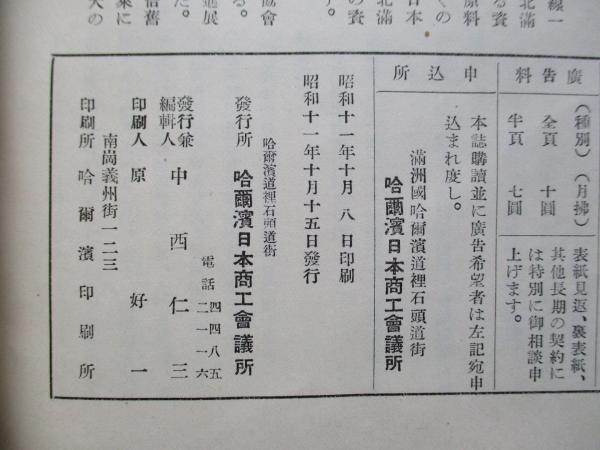 線一
北滿
る資
原料
くの
日本
北滿
の資
す。
協會
る。
進展
た。
信舊
業に
大の
廣告料
(種別) (月拂)
全頁 十圓
半頁 七圓
表紙見返、裏表紙、
其他長期の契約に
は特別に御相談申
上げます。
申込所
本誌購讀並に廣告希望者は左記宛申
込まれ度し。
滿洲國哈爾濱道裡石頭道街
哈爾濱日本商工會議所
昭和十一年十月八日印刷
昭和十一年十月十五日發行
哈爾濱道裡石頭道街
發行所 哈爾濱日本商工會議所
電話 四四八五
二一一六
發行兼
編輯人 中西仁三
印刷人 原好一
南崗義州街一二三
印刷所 哈爾濱印刷所